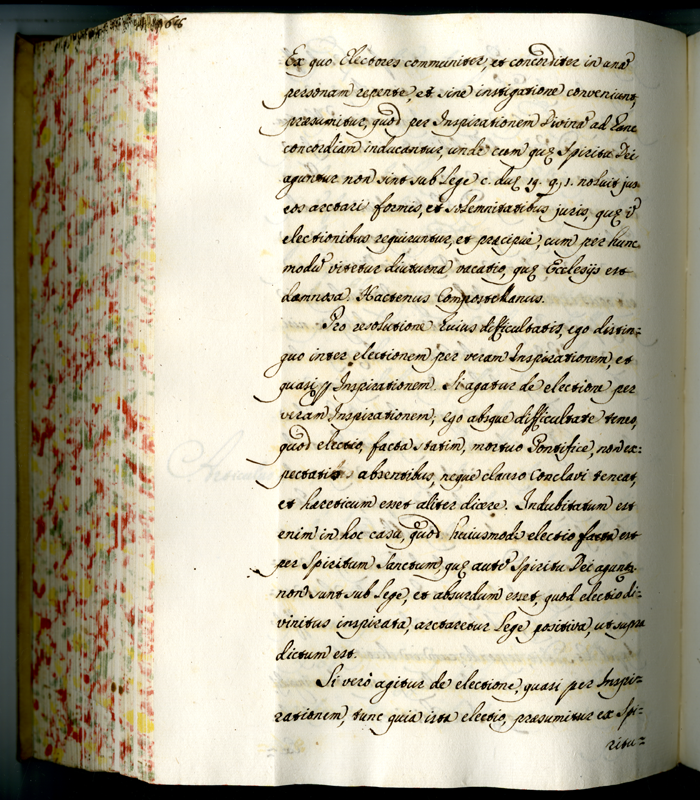 Ex quo Electores communiter, et concorditer in unã
personam repente, et sine instigatione conveniunt,
præsumitur, quod per Inspirationem Divinã ad hanc
concordiam inducantur, unde cum qui Spiritu Dei
aguntur non sint sub Lege c. duæ 19. q. 1. noluit jus
eos arctari formis, et solemnitatibus juris, quæ ĩ
electionibus requiruntur, et præcipuè, cum per hunc
modũ vitetur diuturna vacatio, quæ Ecclesijs est
damnosa. Hactenus Compostellanus.
Pro resolutione huius difficultatis, ego distin=
guo inter electionem per veram Inspirationem, et
quasi p Inspirationem. Si agatur de electione per
veram Inspirationem, ego absque difficultate teneo,
quod electio, facta statim, mortuo Pontifice, non ex=
pectatis absentibus, neque clauso Conclavi teneat,
et hæreticum esset aliter dicere. Indubitatum est
enim in hoc casu, quod huiusmodi electio facta est
per Spiritum Sanctum, qui autẽ Spiritu Dei aguntr
non sunt sub Lege, et absurdum esset, quod electio di=
vinitus inspirata, arctaretur Lege positiva, ut supra
dictum est.
Si verò agitur de electione, quasi per Inspi=
rationem, tunc quia ista electio, præsumitur ex Spi=
ritu=